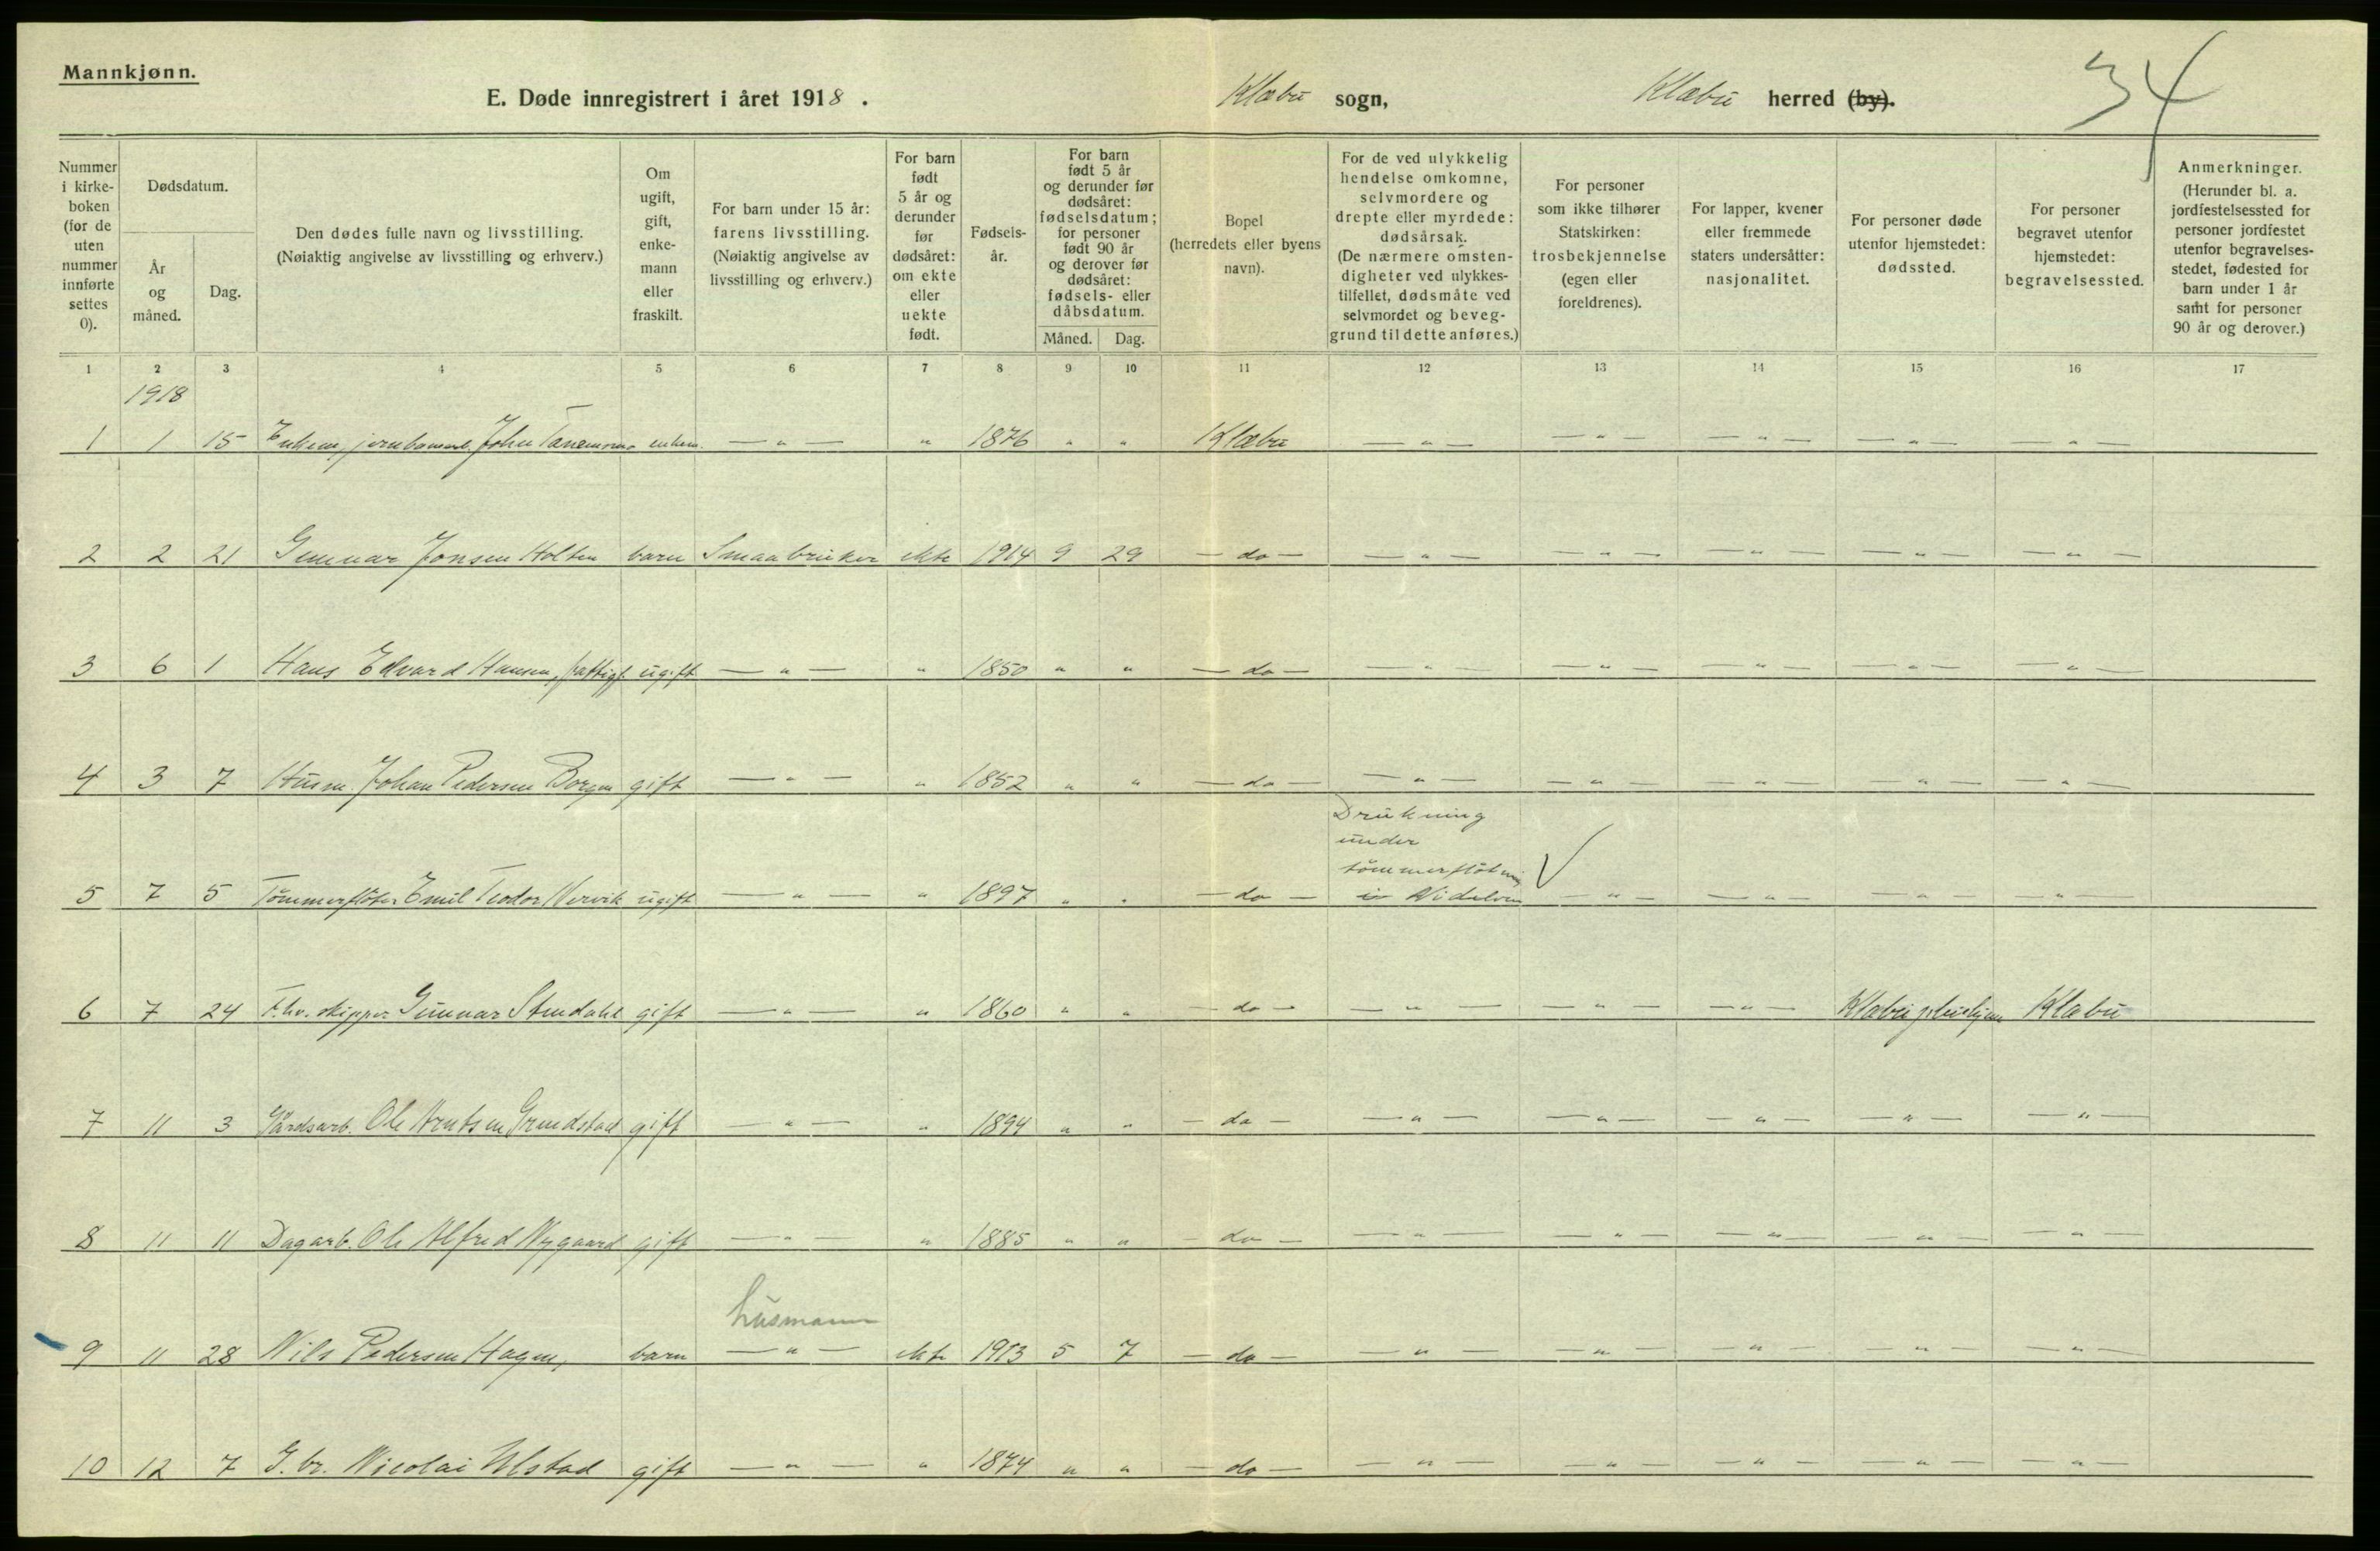 Mannkjønn.
E. Døde innregistrert i året 1918.
Klæbu sogn,
Klæbu herred (by).
34
Nummer i kirke-boken (for de uten nummer innførte settes 0).
Dødsdatum.
År og måned.
Dag.
Den dødes fulle navn og livsstilling. (Nøiaktig angivelse av livsstilling og erhverv.)
Om ugift, gift, enke-mann eller fraskilt.
For barn under 15 år: farens livsstilling. (Nøiaktig angivelse av livsstilling og erhverv.)
For barn født 5 år og derunder før dødsåret: om ekte eller uekte født.
Fødsels-år.
For barn født 5 år og derunder før dødsåret: fødselsdatum; for personer født 90 år og derover før dødsåret: fødsels- eller dåbsdatum.
Måned. Dag.
Bopel (herredets eller byens navn).
For de ved ulykkelig hendelse omkomne, selvmordere og drepte eller myrdede: dødsårsak. (De nærmere omsten-digheter ved ulykkes-tilfellet, dødsmåte ved selvmordet og beveg-grund til dette anføres.)
For personer som ikke tilhører Statskirken: trosbekjennelse (egen eller foreldrenes).
For lapper, kvener eller fremmede staters undersåtter: nasjonalitet.
For personer døde utenfor hjemstedet: dødssted.
For personer begravet utenfor hjemstedet: begravelsessted.
Anmerkninger. (Herunder bl. a. jordfestelsessted for personer jordfestet utenfor begravelses-stedet, fødested for barn under 1 år samt for personer 90 år og derover.)
1 2 3 4 5 6 7 8 9 10 11 12 13 14 15 16 17
1918
1 1 15 John enkem. — " — " 1876 " " Klæbu — " — — " — — " — — " — — " —
2 2 21 Gunnar Jonsen Holten barn Smaabruker ekte 1914 9 29 — do — — " — — " — — " — — " — — " —
3 6 1 Hans Edvard Hansen, fattigf. ugift — " — " 1850 " " — do — — " — — " — — " — — " — — " —
4 3 7 Husm. Johan Pedersen Borgen gift — " — " 1852 " " — do — — " — — " — — " — — " — — " —
Drukning
under
tømmerfløtning
5 7 5 Tømmerfløter Emil Teodor Nervik ugift — " — " 1897 " " — do — i Nidelven — " — — " — — " — — " —
6 7 24 F.hv. skipper Gunnar Stendahl gift — " — " 1860 " " — do — — " — — " — — " — Klæbu pleiehjem Klæbu
7 11 3 Gårdsarb. Ole Arntsen Grendstad gift — " — " 1894 " " — do — — " — — " — — " — — " — — " —
8 11 11 Dagarb. Ole Alfred Nygaard gift — " — " 1885 " " — do — — " — — " — — " — — " — — " —
husmann
9 11 28 Nils Pedersen Hagen, barn — " — ekte 1913 5 7 — do — — " — — " — — " — — " — — " —
10 12 7 G.br. Nicolai Ulstad gift — " — " 1874 " " — do — — " — — " — — " — — " — — " —